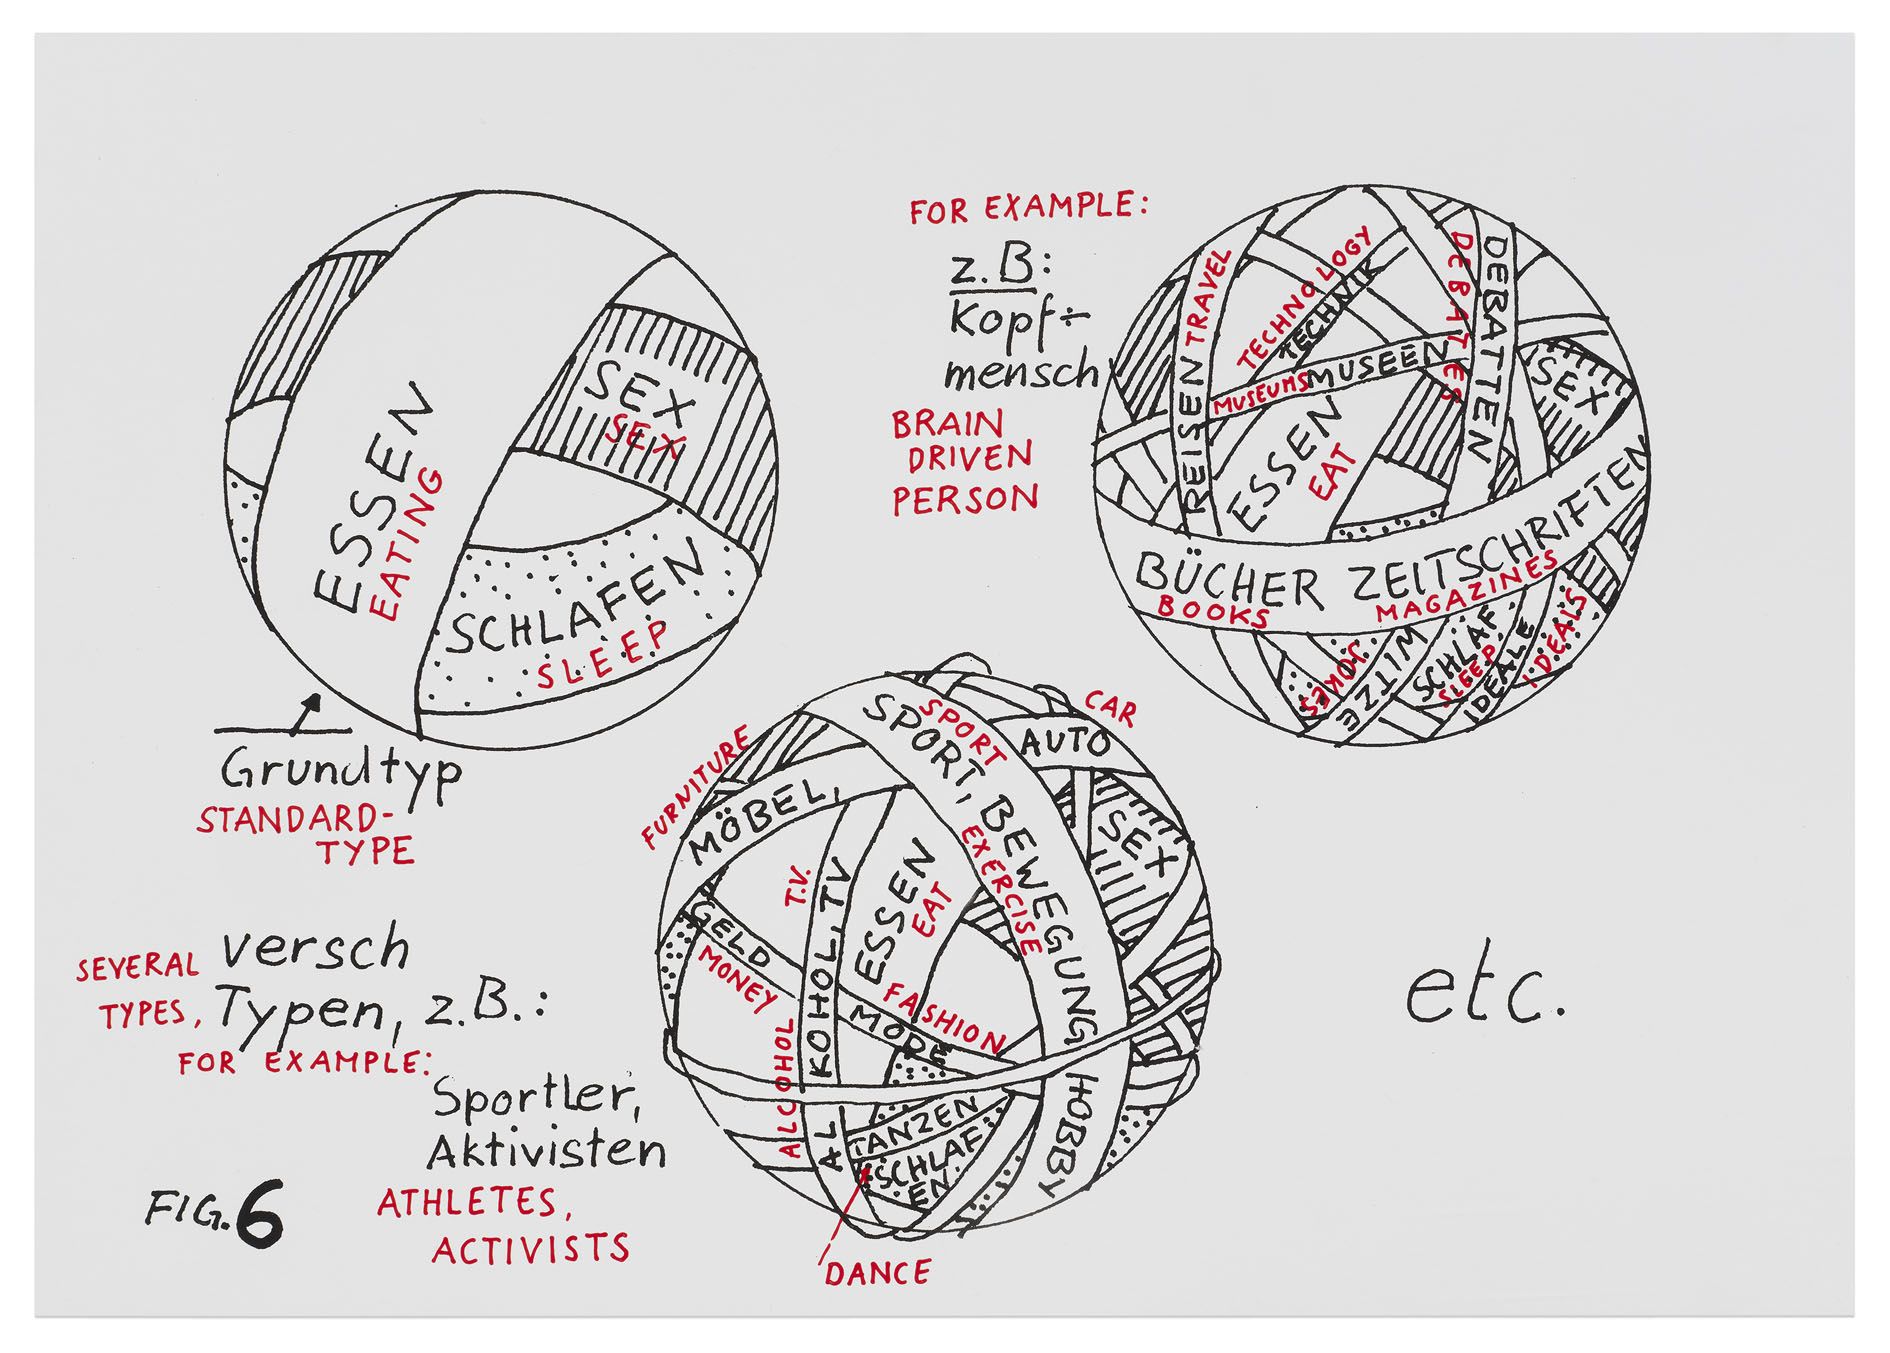 ESSEN
EATING
SEX
SEX
SCHLAFEN
SLEEP
Grundtyp
STANDARD-
TYPE
FOR EXAMPLE:
z.B:
Kopf÷
mensch
BRAIN
DRIVEN
PERSON
REISEN TRAVEL
TECHNOLOGY
TECHNIK
DEBATES
DEBATTEN
MUSEUMS MUSEEN
SEX
ESSEN
EAT
BÜCHER ZEITSCHRIFTEN
BOOKS MAGAZINES
JOKES
WITZE
SCHLAF
SLEEP
IDEALE
IDEALS
SEVERAL versch
TYPES, Typen, z.B.:
FOR EXAMPLE:
Sportler,
Aktivisten
ATHLETES,
ACTIVISTS
FURNITURE
MÖBEL,
SPORT
SPORT, BEWEGUNG
EXERCISE
HOBBY
CAR
AUTO
SEX
T.V.
ALKOHOL, TV
ALCOHOL
ESSEN
EAT
GELD
MONEY
FASHION
MODE
TANZEN
SCHLAF
EN
DANCE
etc.
FIG. 6